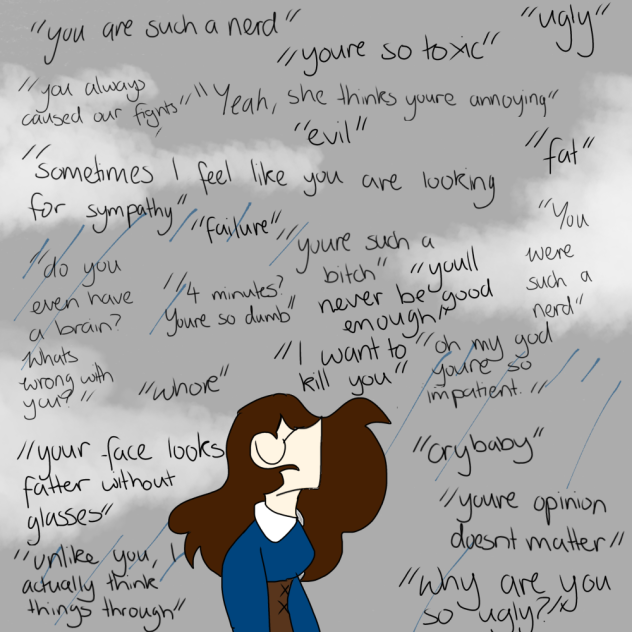 "you are such a nerd"
"youre so toxic"
"ugly"
"you always
caused our fights"
"Yeah, she thinks youre annoying"
"evil"
"fat"
"sometimes I feel like you are looking
for sympathy"
"failure"
"You
were
such a
nerd"
"do you
even have
a brain?
Whats
wrong with
you?"
"4 minutes?
Youre so dumb"
youre such a
bitch"
"youll
never be good
enough"
"whore"
"I want to
kill you"
"oh my god
youre so
impatient."
"your face looks
fatter without
glasses"
"crybaby"
"youre opinion
doesnt matter"
"unlike you, I
actually think
things through"
"why are you
so ugly?"